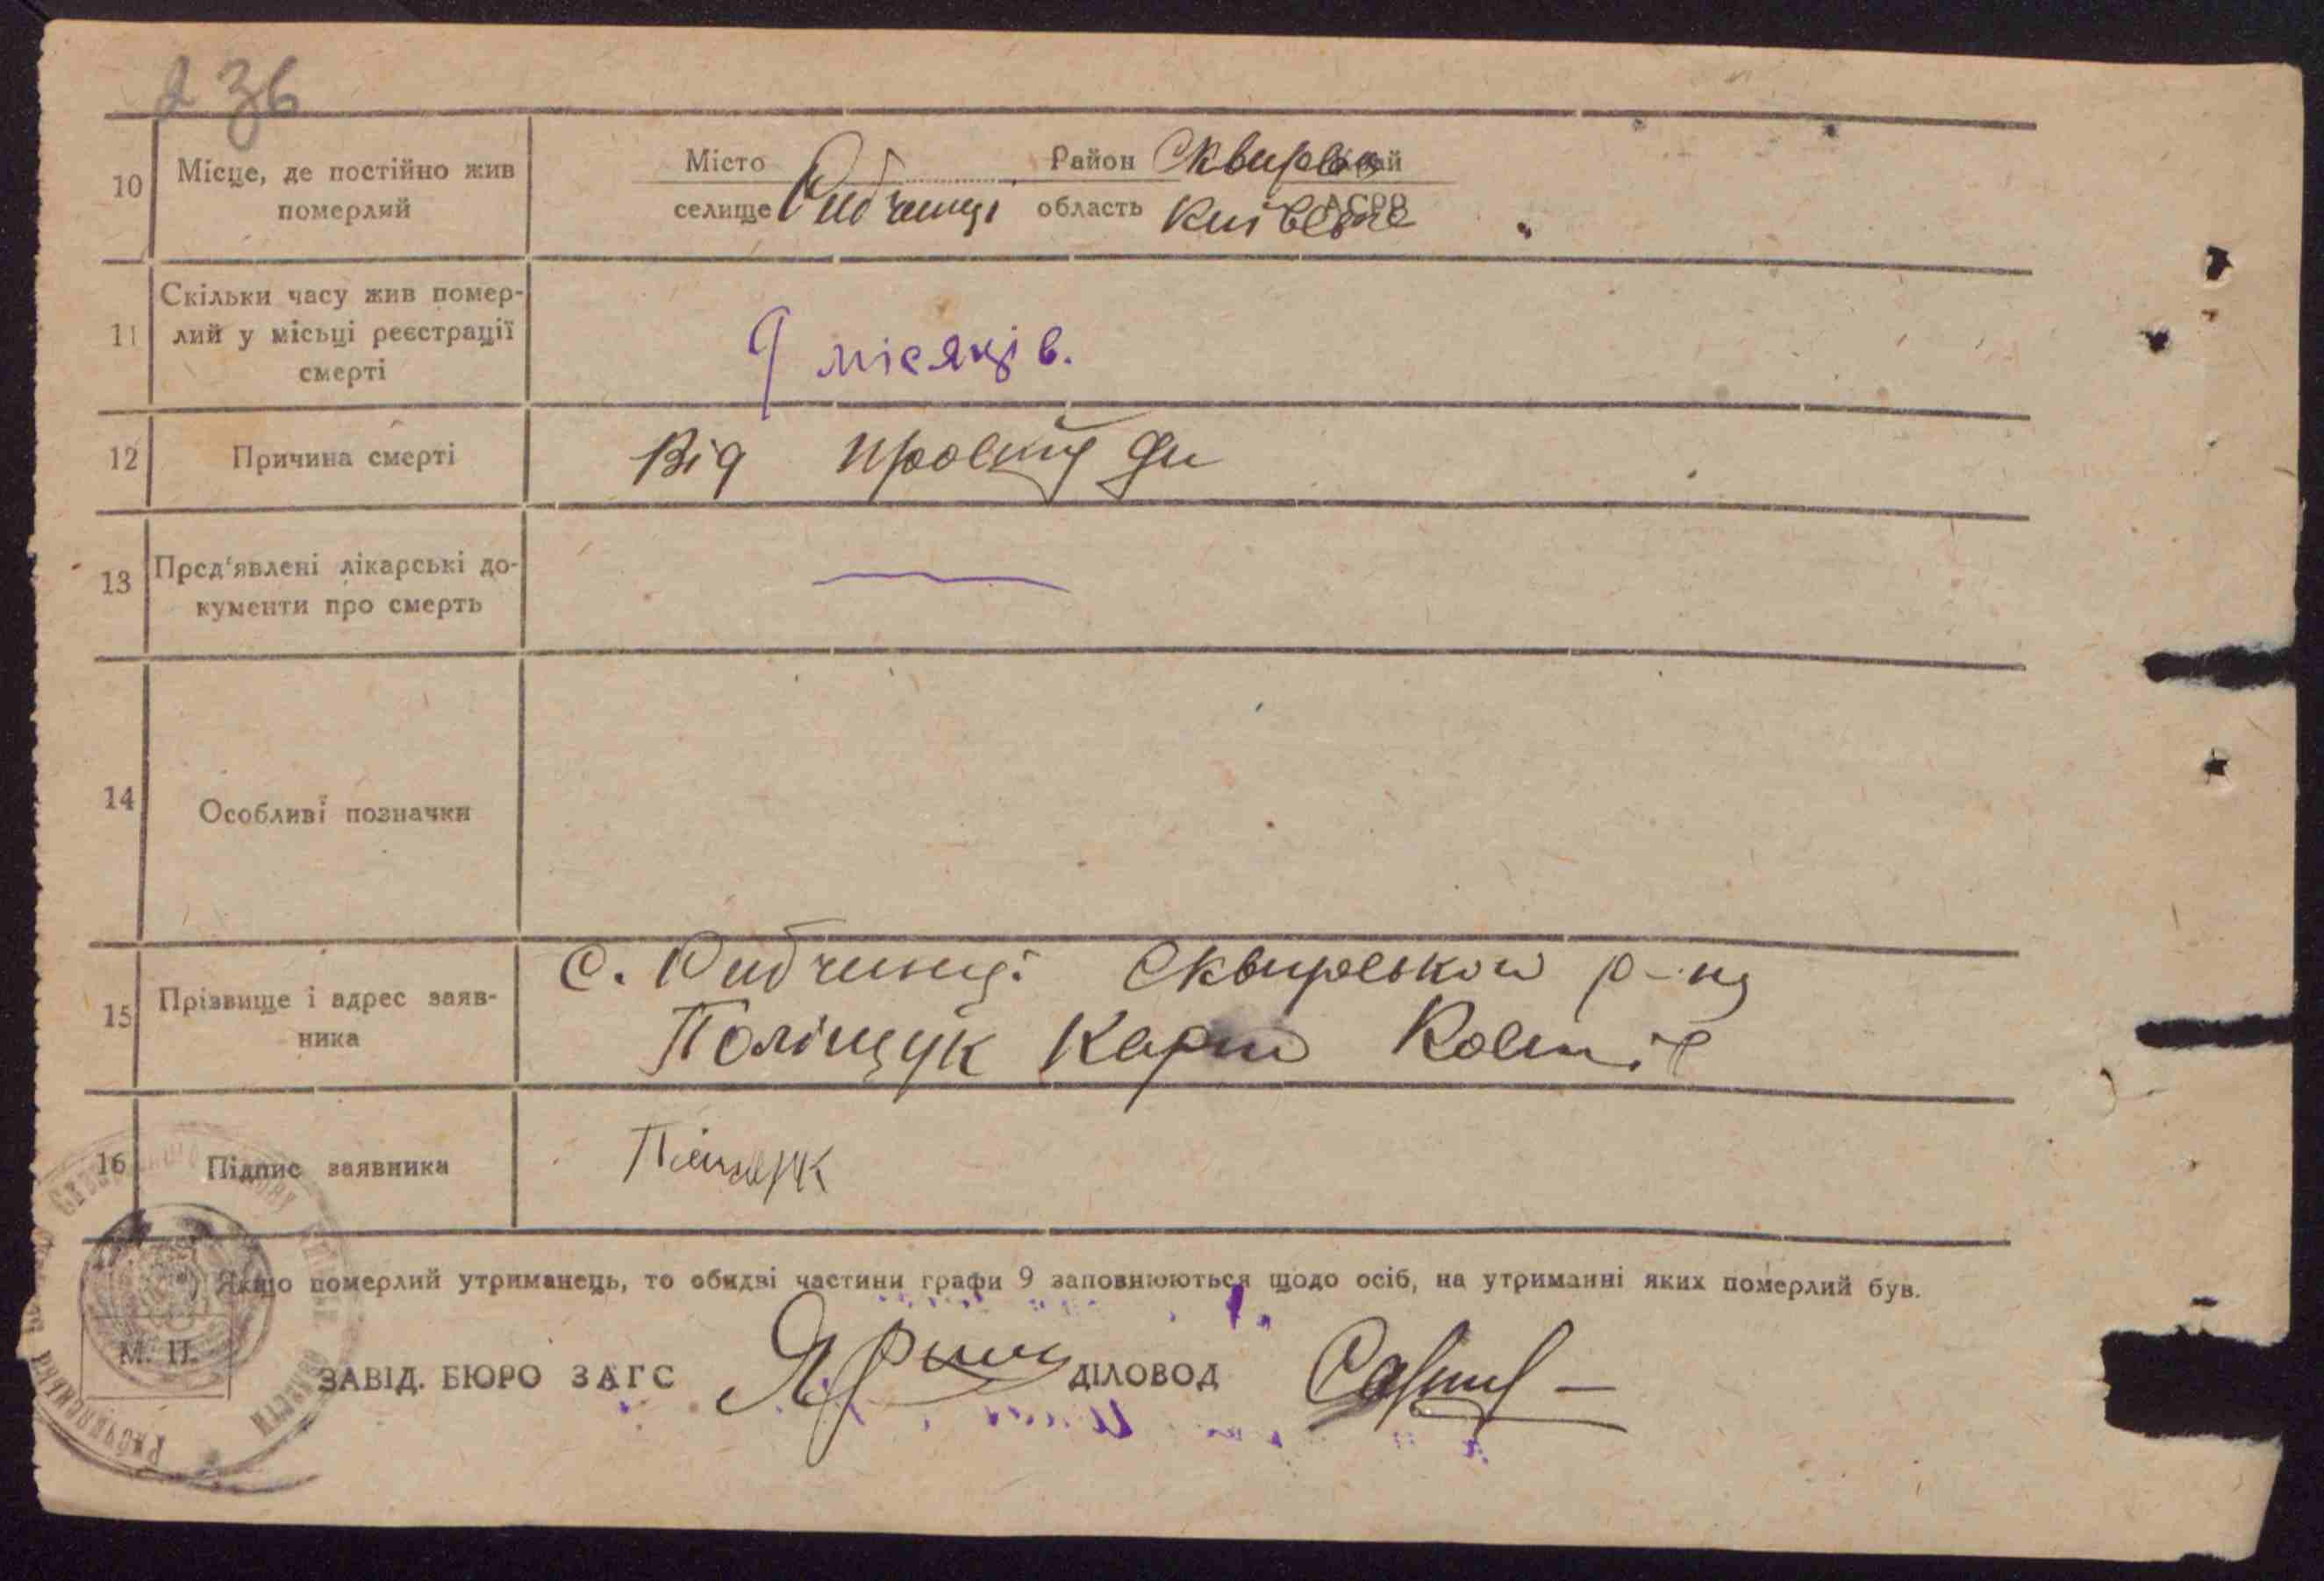 236
10 Місце, де постійно жив померлий
Місто Рибчинці Район Сквирськ край
селище область Київське АСРР
11 Скільки часу жив помер-
лий у місьці реєстрації
смерті
9 місяців.
12 Причина смерті
Від простуди
13 Пред'явлені лікарські до-
кументи про смерть
14 Особливі позначки
15 Прізвище і адрес заяв-
ника
с. Рибчинці Сквирської р-ну
Поліщук Карпо
16 Підпис заявника
Якщо померлий утриманець, то обидві частини графи 9 заповнюються щодо осіб, на утриманні яких померлий був.
М. П.
ЗАВІД. БЮРО ЗАГС ДІЛОВОД